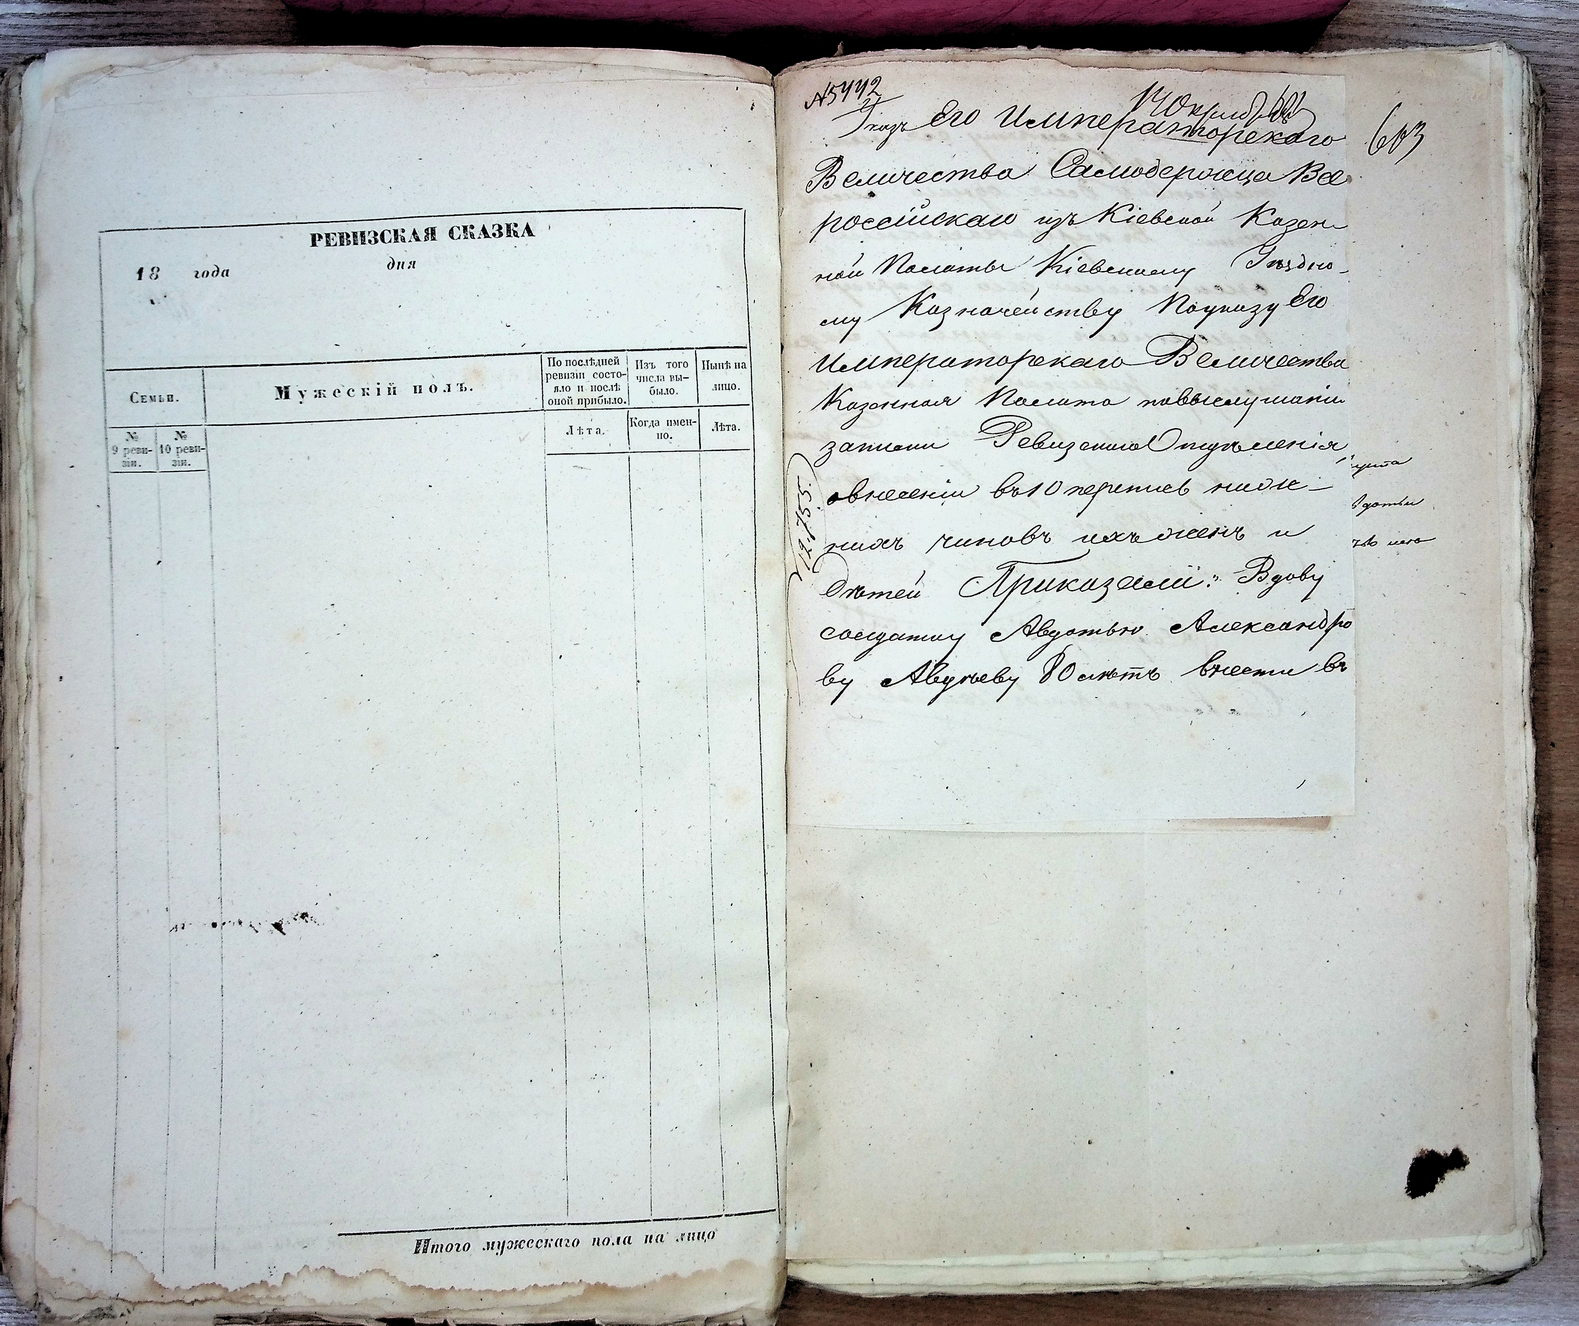 РЕВИЗСКАЯ СКАЗКА
18 года дня
Семьи.
Мужескій полъ.
По послѣдней ревизіи состояло и послѣ оной прибыло.
Изъ того числа выбыло.
Нынѣ на лицо.
№ 9 ревизіи.
№ 10 ревизіи.
Лѣта.
Когда именно.
Лѣта.
Итого мужескаго пола на лицо
603
Указъ Его Императорскаго
Величества Самодержца Все
россійскаго изъ Кіевской Казен
ной Палаты Кіевскому Уѣздно-
му Казначейству По указу Его
Императорскаго Величества
Казенная Палата по выслушаніи
записки Ревизскаго Отдѣленія
о внесеніи въ 10 перепись ниж-
нихъ чиновъ ихъ женъ и
дѣтей Приказали: Вдову
солдатку Авдотью Александро
ву Авдѣеву 80 лѣтъ внести въ